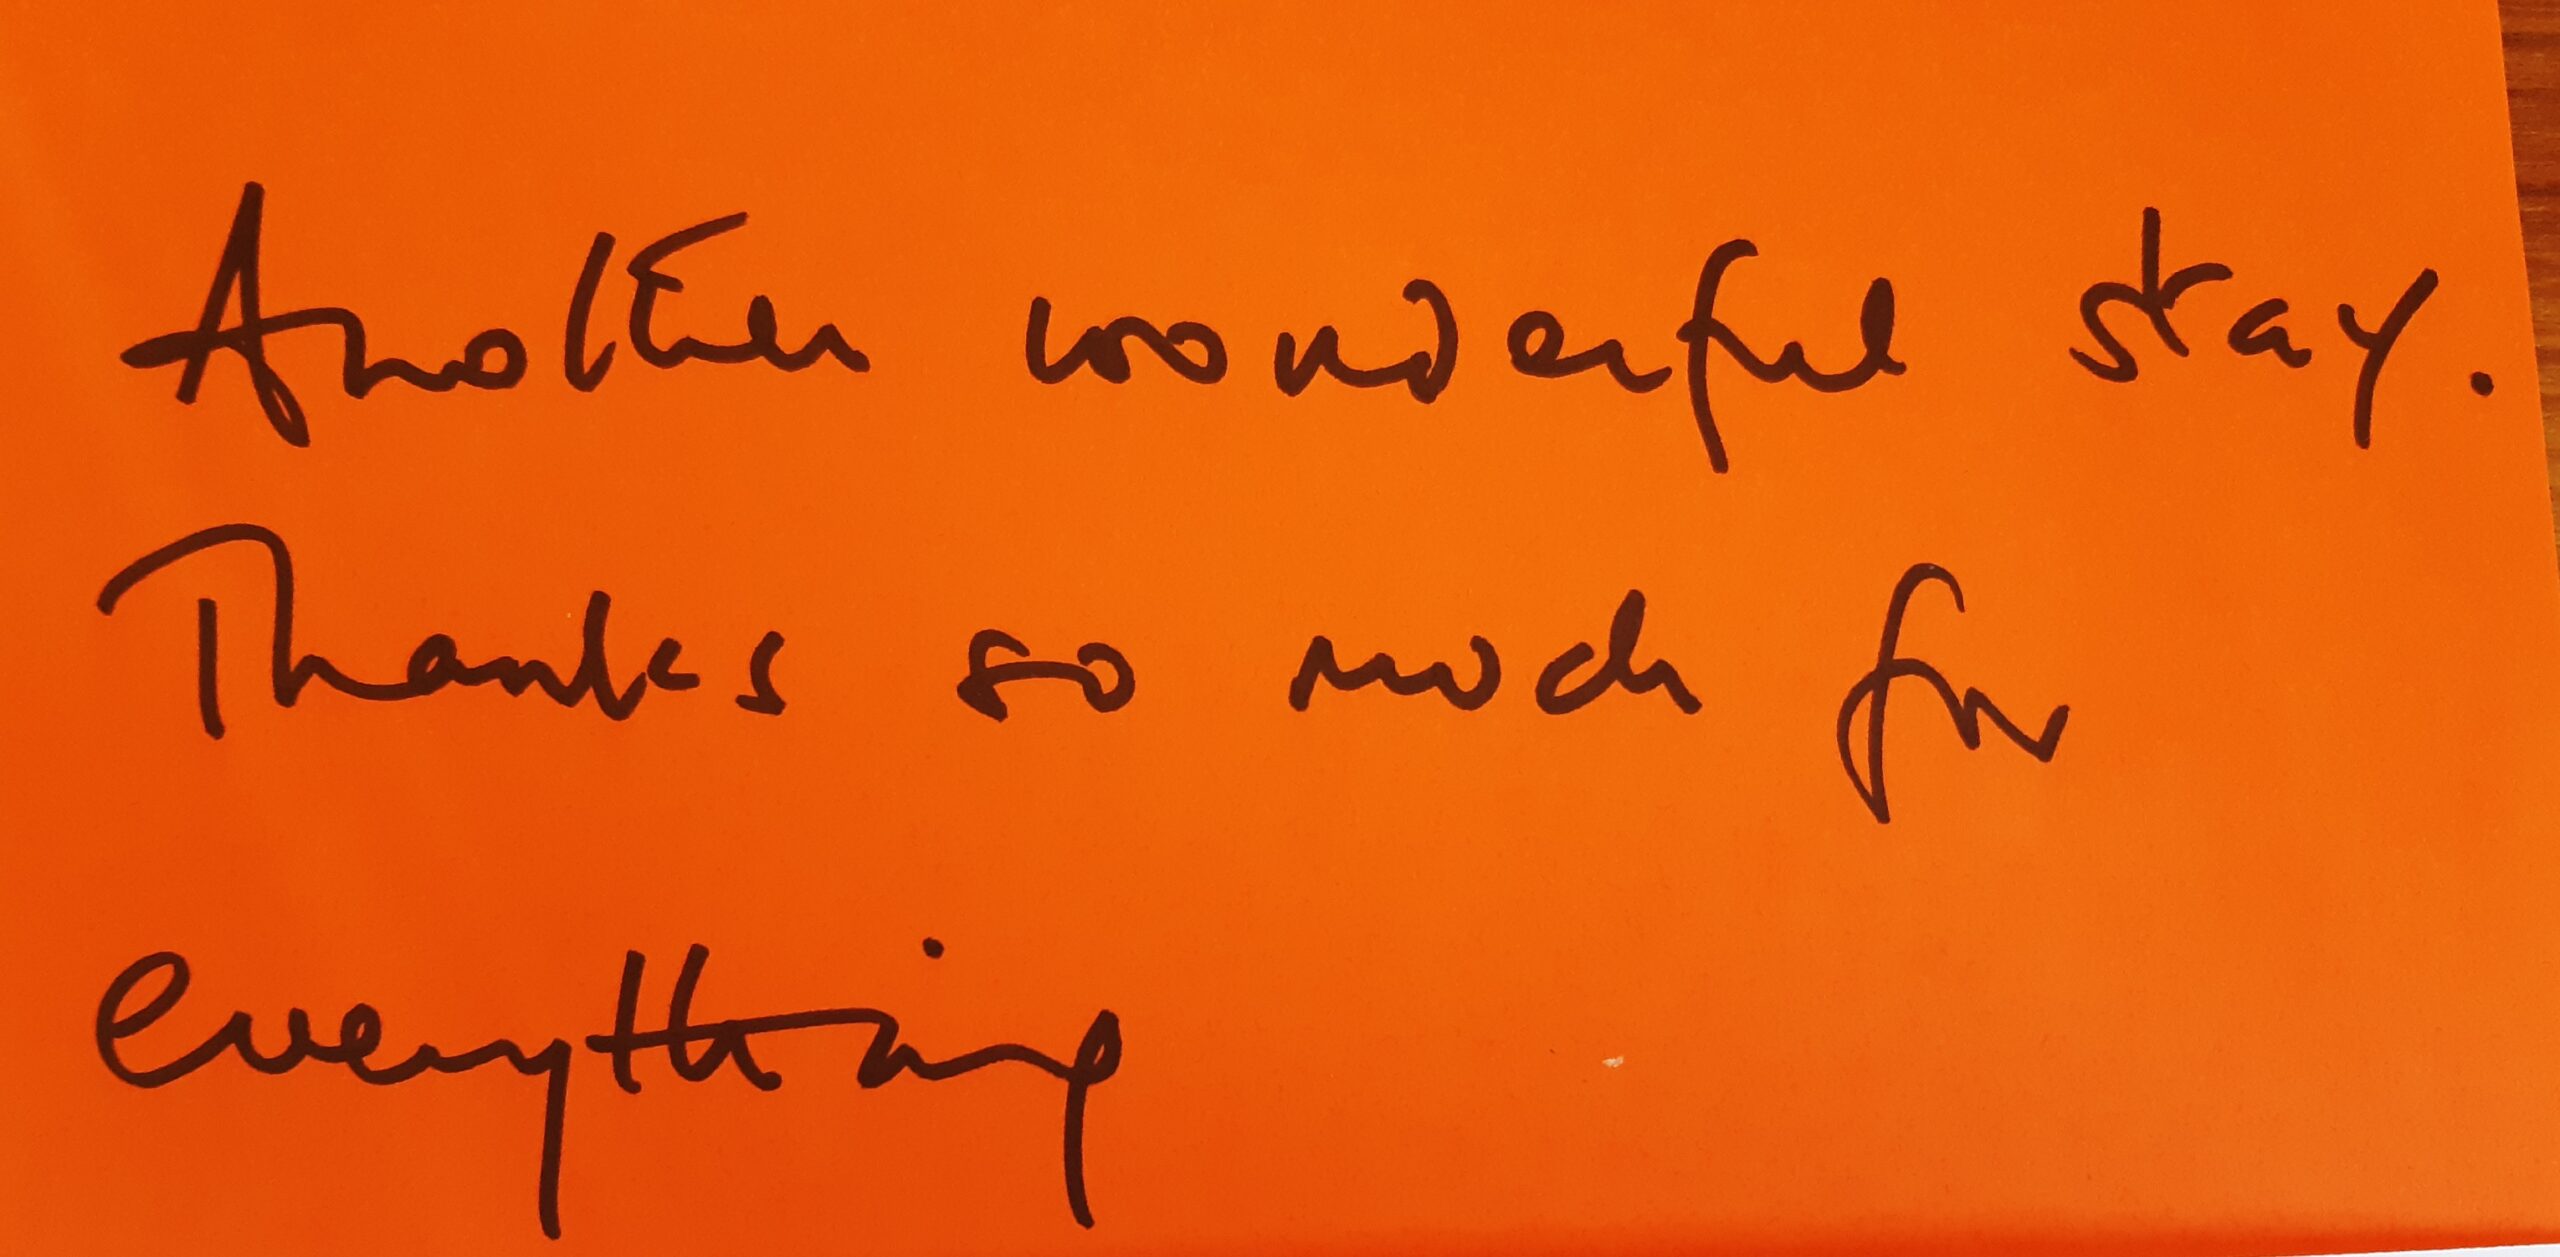 Another wonderful stay.
Thanks so much for
everything